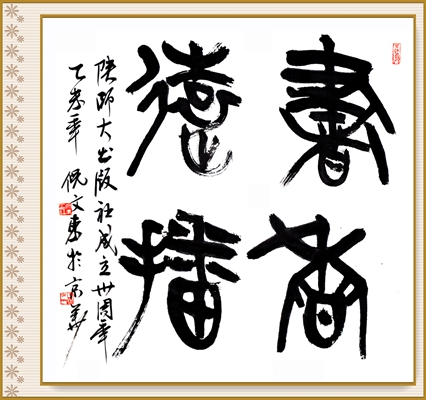 書香
遠播
陝師大出版社成立卅周年
乙未年 倪文東於京華